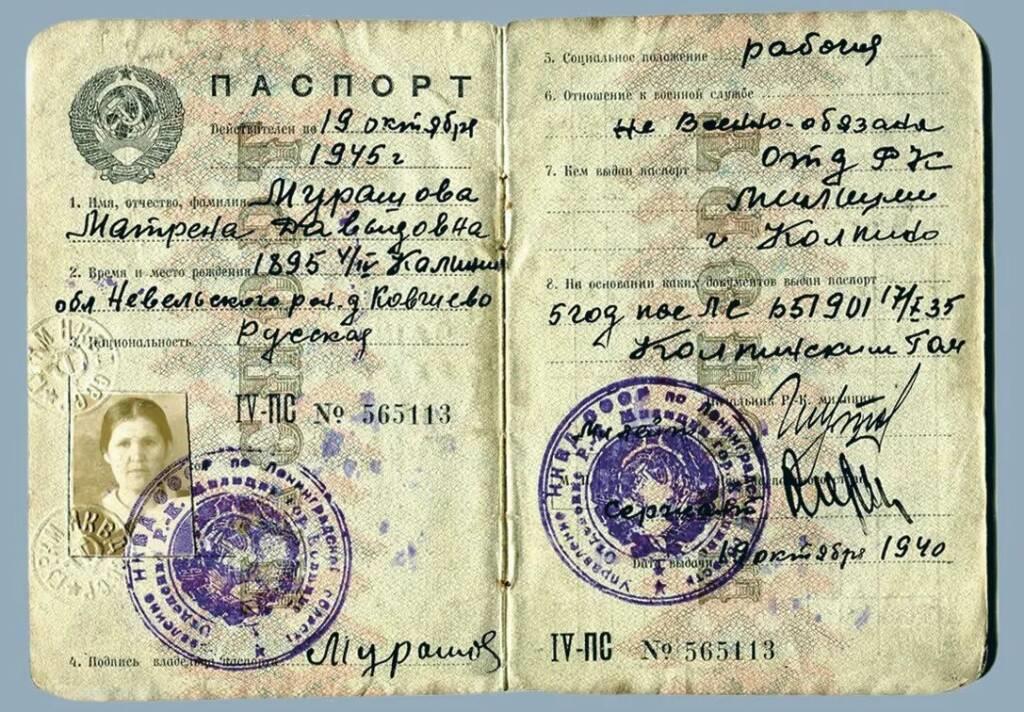 ПАСПОРТ
Действителен по 19 октября
1945 г
1. Имя, отчество, фамилия Мурашова
Матрена Давыдовна
2. Время и место рождения 1895 4/IV Калинин
обл Невельского рай. д Ковчиево
3. Национальность Русская
IV-ПС № 565113
4. Подпись владельца паспорта Мурашов
5. Социальное положение рабочая
6. Отношение к военной службе
не Военно-обязана
7. Кем выдан паспорт Отд РК
Милиции
г Колпино
8. На основании каких документов выдан паспорт
5 год пас ЛС 651901 17/I 35
Колпинским Гом
Начальник Р.-К. милиции
Сержант
Дата выдачи 19 октября 1940
IV-ПС № 565113